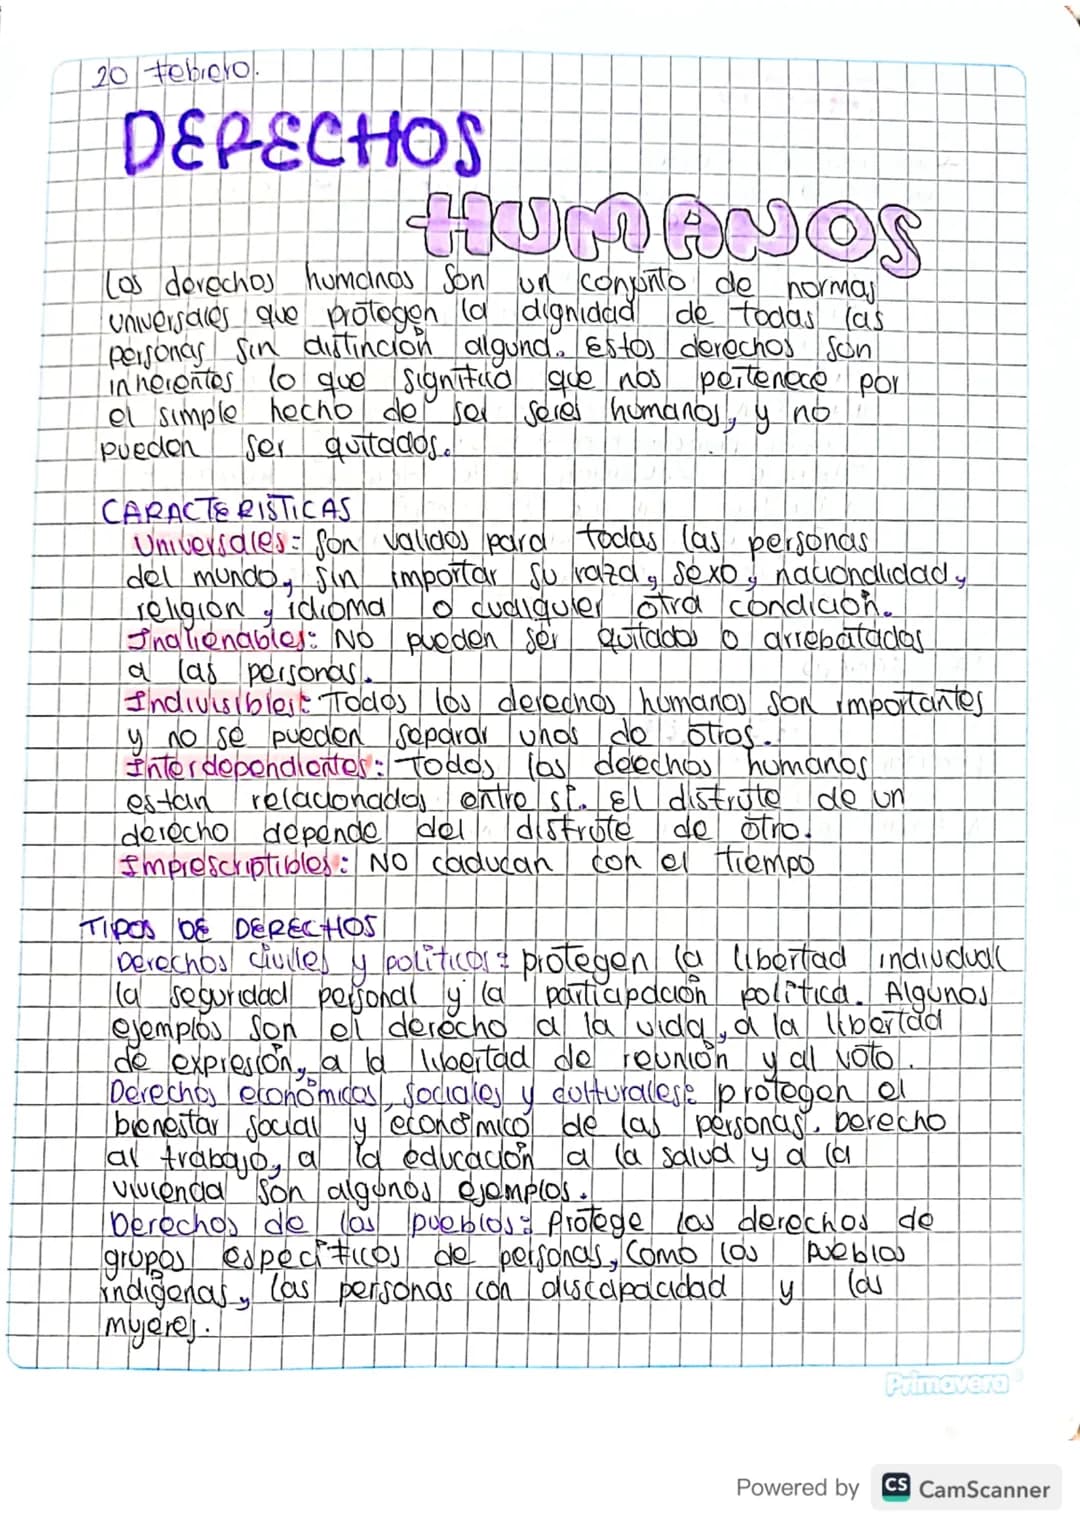 20 febrero.
DERECHOS
HUMANOS
Los derechos humanos son un conjunto de normas
universales que protegen la dignidad de todas las
personas sin distinción alguna. Estos derechos son
inherentes lo que significa que nos pertenece por
el simple hecho de ser seres humanos, y no
pueden ser quitados.
CARACTERISTICAS
Universales= Son validos para todas las personas
del mundo, sin importar su raza, sexo, nacionalidad,
religion, idioma o cualquier otra condición.
Inalienables: No pueden ser quitados o arrebatados
a las personas.
Indivisibles: Todos los derechos humanos son importantes
y no se pueden separar unos de otros.
Interdependientes: Todos los deechos humanos
estan relacionados entre sí. El disfrute de un
derecho depende del disfrute de otro.
Imprescriptibles: No caducan con el tiempo
TIPOS DE DERECHOS
Derechos civiles y políticos: protegen la libertad individual
la seguridad personal y la participación política. Algunos
ejemplos son el derecho a la vida, a la libertad
de expresión, a la libertad de reunión y al voto.
Derechos económicos, sociales y culturales: protegen el
bienestar social y económico de las personas. Derecho
al trabajo, a la educación a la salud y a la
vivienda son algunos ejemplos.
Derechos de los pueblos: Protege los derechos de
grupos específicos de personas, Como los pueblos
indígenas, las personas con discapacidad y las
mujeres.
Primavera
Powered by CS CamScanner